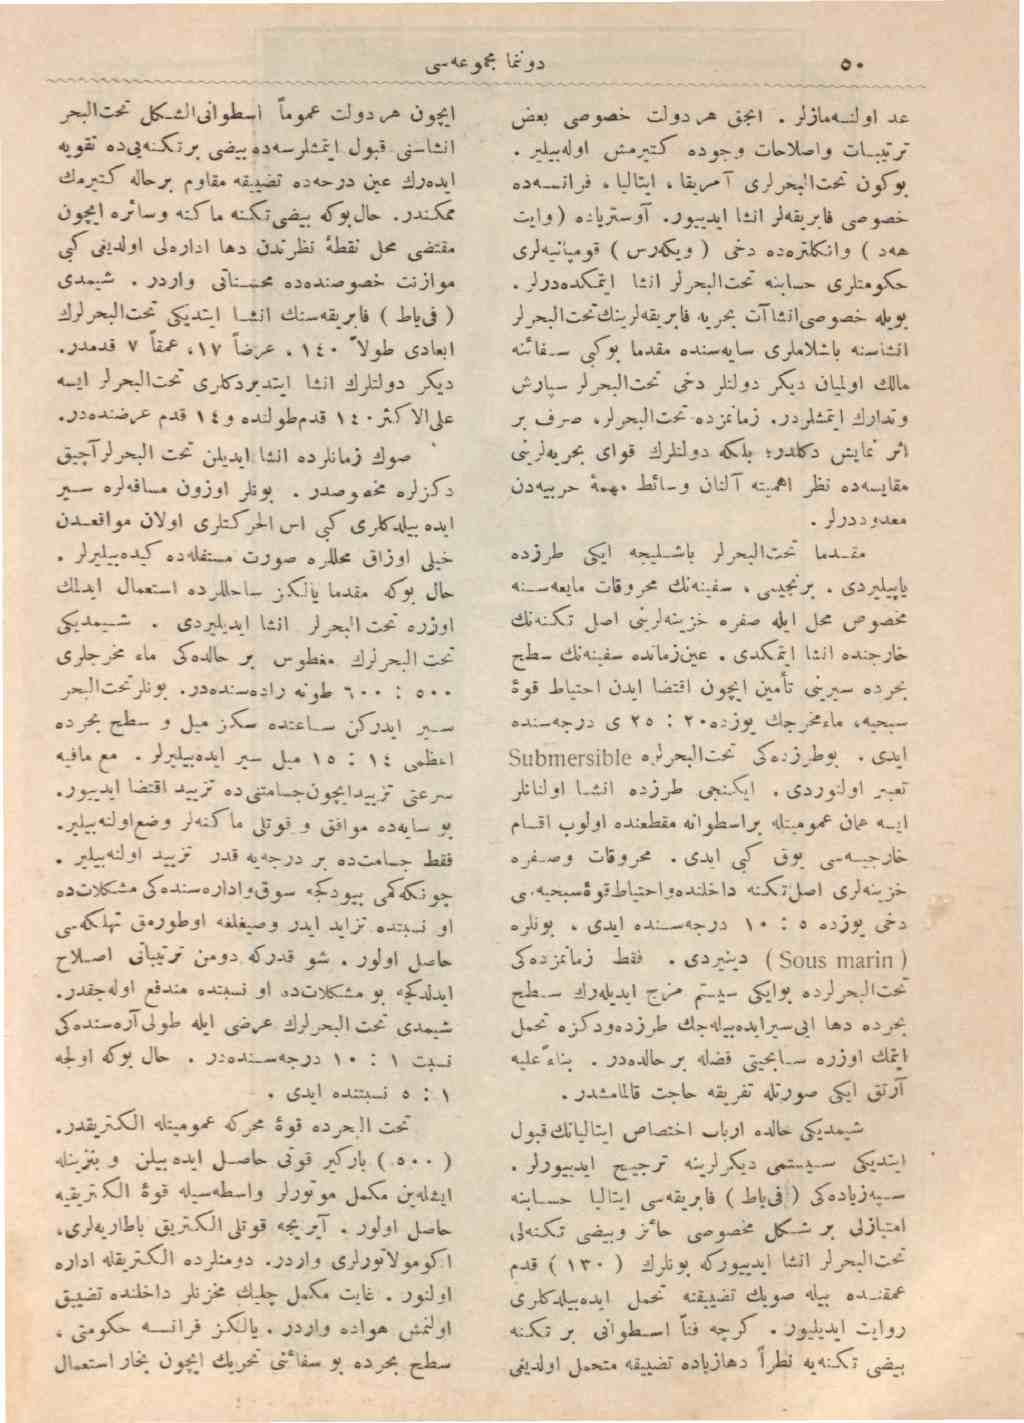 ٥٠
دوننما مجموعه‌سی
عد اولنـه‌مازلر . انجق هر دولت خصوصی بعض
ترتیبـات واصلاحات وجوده كتیرمش اوله‌بیلیر .
بوكون تحت‌البحرلری آمریقا ، ایتالیا ، فرانسـه‌ده
خصوصی فابریقه‌لر انشا ایدییور. آوستریاده (وایت
هه‌د ) وانكلتره‌ده دخی ( ویكه‌رس ) قومپانیه‌لری
حكومتلری حسابنه تحت‌البحرلر انشا ایتمكده‌درلر .
بویله خصوصی‌انشاآت بحریه فابریقه‌لرینك‌تحت‌البحرلر
انشاسنه باشلاملری سایه‌سنده مقدما بوكبی سـفائنه
مالك اولمیان دیكر دولتلر دخی تحت‌البحرلر سپارش
وتدارك ایتمشلردر. زمانمزده تحت‌البحرلر، صرف بر
اثر نمایش دكلدر؛ بلكه دولتلرك قوای بحریه‌لرینی
مقایسه‌ده نظر اهمیته آلنان وسائط مهمهٔ حربیه‌دن
معدوددرلر .
مقـدما تحت‌البحرلر باشـلیجه ایكی طرزده
یاپیلیردی . برنجیسی ، سفینه‌نك محروقات مایعه‌سـنه
مخصوص محل ایله صفره خزینه‌لرینی اصل تكنه‌نك
خارجنده انشا ایتمكدی . عین‌زمانده سفینه‌نك سطح
بحرده سیرینی تأمین ایچون اقتضا ایدن احتیاط قوهٔ
سبحیه، ماءمخرجك یوزده٢٠ : ٢٥ ی درجه‌سنده
ایدی . بوطرزده‌كی تحت‌البحرلره Submersible
تعبیر اولنوردی . ایكنجی طرزده انشـا اولنانلر
ایسه همان عمومیتله براسطوانه مقطعنده اولوب اقسام
خارجیـه‌سی یوق كبی ایدی. محروقات وصـفره
خزینه‌لری اصل‌تكنه داخلنده‌واحتیاط‌قوهٔ‌سبحیه‌سی
دخی یوزده ٥ : ١٠ درجه‌سـنده ایدی ، بونلره
( Sous marin ) دینیردی . فقط زمانمزده‌كی
تحت‌البحرلرده بوایكی سیستم مزج ایدیله‌رك سـطح
بحرده دها ایی‌سیرایده‌بیله‌جك طرزده‌ودكزه تحمل
ایتمك اوزره سـابحیتی فضله بر حالده‌در. بناءً علیه
آرتق ایكی صورتله تفریقه حاجت قالمامشدر .
شیمدیكی حالده ارباب اختصاص ایتالیانك‌قبول
ایتدیكی سـیستمی دیكرلرینه ترجیح ایدییورلر .
سـپه‌زیاده‌كی ( فی‌یاط ) فابریقه‌سی ایتالیا حسـابنه
امتیازلی بر شـكل مخصوصی حائز وبیضی تكنه‌لی
تحت‌البحرلر انشا ایدییوركه بونلرك ( ١٣٠ ) قدم
عمقنـده بیله صویك تضییقنه تحمل ایده‌بیلدكلری
روایت ایدیلیور. كرچه فناً اسـطوانی بر تكنه
بیضی تكنه‌یه نظراً دهازیاده تضییقه متحمل اولدیغی
ایچون هر دولت عموماً اسطوانی‌الشـكل تحت‌البحر
انشاسنی قبول ایتمشلرسه‌ده بیضی بر تكنه‌یی‌ده تقویه
ایده‌رك عین درجه‌ده تضییقه مقاوم برحاله كتیرمك
ممكندر. حال‌بوكه بیضی‌تكنه ماكنه وسائره ایچون
مقتضی محل نقطهٔ نظرندن دها اداره‌لی اولدیغی كبی
موازنت خصوصنده‌ده محسنـاتی واردر . شیمدی
( فی‌یاط ) فابریقه‌سنك انشـا ایتدیكی تحت‌البحرلرك
ابعادی طولاً ١٤٠ ، عرضاً ١٧، عمقاً ٧ قدمدر.
دیكر دولتلرك انشا ایتدیردكلری تحت‌البحرلر ایسه
علی‌الاكثر ١٤٠ قدم‌طولنده و١٤ قدم عرضنده‌در.
صوك زمانلرده انشا ایدیلن تحت البحرلرآچیق
دكزلره مخصوصدر . بونلر اوزون مسافه‌لره سـیر
ایده بیلدكلری كبی اس الحركتلری اولان مواقعـدن
خیلی اوزاق محللره صورت مستقله‌ده كیده‌بیلیرلر .
حال بوكه مقدما یالكز ساحللرده استعمال ایدلمك
اوزره تحت البحرلر انشا ایدیلیردی . شـیمدیكی
تحت البحرلرك مغطوس بر حالده‌كی ماء مخرجلری
٥٠٠ : ٦٠٠ طونه راده‌سنده‌در. بونلرتحت‌البحر
سـیر ایدركن سـاعتده سكز میل و سطح بحرده
اعظمی ١٤ : ١٥ میل سیر ایده‌بیلیرلر . مع مافیه
سرعتی تزییدایچون‌جسامتنی‌ده تزیید اقتضا ایدییور.
بو سایه‌ده موافق و قوتلی ماكنه‌لر وضع‌اولنه‌بیلیر.
فقط جسامت‌ده بر درجه‌یه قدر تزیید اولنه‌بیلیر .
چونكه‌كمی بیودكجه سوق‌واداره‌سنده‌كی مشكلات‌ده
او نسبتده تزاید ایدر وصیغلغه اوطورمق تهلكه‌سی
حاصل اولور . شو قدركه دومن ترتیباتی اصـلاح
ایدلدكجه بو مشكلات‌ده او نسبتده مندفع اوله‌جقدر.
شیمدی تحت البحرلرك عرضی ایله طولی آره‌سنده‌كی
نسبت ١ : ١٠ درجه‌سـنده‌در . حال بوكه اولجه
١ : ٥ نسبتنده ایدی .
تحت البحرده قوهٔ محركه عمومیتله الكتریقدر.
( ٥٠٠ ) باركیر قوتی حاصـل ایده بیلن و بنزینله
ایشله‌ین مكمل موتورلر واسطه‌سیله قوهٔ الكتریقیه
حاصل اولور . آیریجه قوتلی الكتریق باطاریه‌لری،
اكومولاتورلری واردر. دومنلرده الكتریقله اداره
اولنور . غایت مكمل چلیك مخزنلر داخلنده تضییق
اولنمش هواده واردر . یالكز فرانسـه حكومتی ،
سطح بحرده بو سفائنی تحریك ایچون بخار استعمال